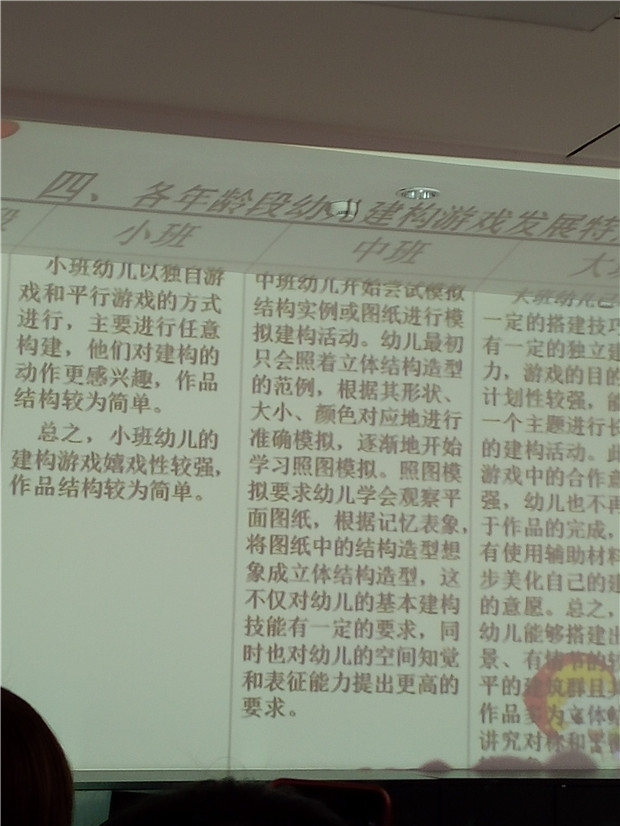 四、各年龄段幼儿建构游戏发展特
段
小班
中班
大
小班幼儿以独自游
戏和平行游戏的方式
进行，主要进行任意
构建，他们对建构的
动作更感兴趣，作品
结构较为简单。
总之，小班幼儿的
建构游戏嬉戏性较强，
作品结构较为简单。
中班幼儿开始尝试模拟
结构实例或图纸进行模
拟建构活动。幼儿最初
只会照着立体结构造型
的范例，根据其形状、
大小、颜色对应地进行
准确模拟，逐渐地开始
学习照图模拟。照图模
拟要求幼儿学会观察平
面图纸，根据记忆表象，
将图纸中的结构造型想
象成立体结构造型，这
不仅对幼儿的基本建构
技能有一定的要求，同
时也对幼儿的空间知觉
和表征能力提出更高的
要求。
大班幼儿已
一定的搭建技巧
有一定的独立建
力，游戏的目的
计划性较强，能
一个主题进行长
的建构活动。此
游戏中的合作意
强，幼儿也不再
于作品的完成，
有使用辅助材料
步美化自己的建
的意愿。总之，
幼儿能够搭建出
景、有情节的较
平的建筑群且
作品多为立体结
讲究对称和平衡